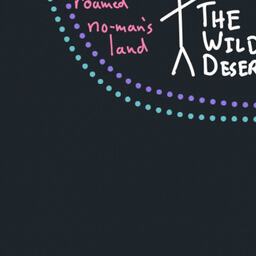 roamed
no-man's
land
THE
WILD
DESER